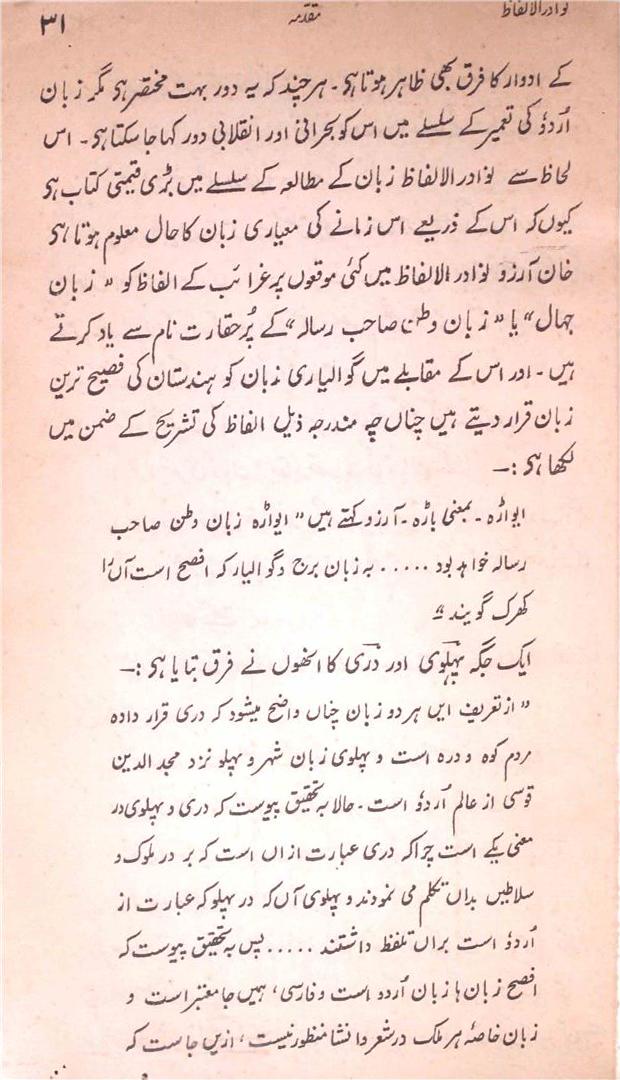 نوادر الالفاظ مقدّمہ ۳۱
کے ادوار کا فرق بھی ظاہر ہوتا ہی۔ ہر چند کہ یہ دور بہت مختصر ہی مگر زبان
اُردؤ کی تعمیر کے سلسلے میں اس کو بحرانی اور انقلابی دور کہا جا سکتا ہی۔ اس
لحاظ سے نوادر الالفاظ زبان کے مطالعہ کے سلسلے میں بڑی قیمتی کتاب ہی
کیوں کہ اس کے ذریعے اس زمانے کی معیاری زبان کا حال معلوم ہوتا ہی
خان آرزو نوادر الالفاظ میں کئی موقعوں پر غرائب کے الفاظ کو ”زبان
جہال“ یا ”زبان وطن صاحب رسالہ“ کے پُر حقارت نام سے یاد کرتے
ہیں۔ اور اس کے مقابلے میں گوالیاری زبان کو ہندستان کی فصیح ترین
زبان قرار دیتے ہیں چناں چہ مندرجہ ذیل الفاظ کی تشریح کے ضمن میں
لکھا ہی :—
ایواڑہ۔ بمعنی باڑہ۔ آرزو کہتے ہیں ”ایواڑہ زبان وطن صاحب
رسالہ خواہد بود ..... بہ زبان برج و گوالیار کہ افصح است آں را
کھرک گویند“
ایک جگہ پہلوی اور دری کا انھوں نے فرق بتایا ہی :—
”از تعریف ایں ہر دو زبان چناں واضح میشود کہ دری قرار دادہ
مردم کوہ و درہ است و پہلوی زبان شہر و پہلو نزد مجد الدین
قوسی از عالم اُردؤ است۔ حالا بہ تحقیق پیوست کہ دری و پہلوی در
معنی یکے است چرا کہ دری عبارت ازاں است کہ بر در ملوک و
سلاطیں بداں تکلم می نمودند و پہلوی آں کہ در پہلو کہ عبارت از
اُردؤ است براں تلفظ داشتند ..... پس بہ تحقیق پیوست کہ
افصح زبان ہا زبان اُردو است و فارسی، ہمیں جا معتبر است و
زبان خاصۂ ہر ملک در شعر و انشا منظور نیست، ازیں جا ست کہ